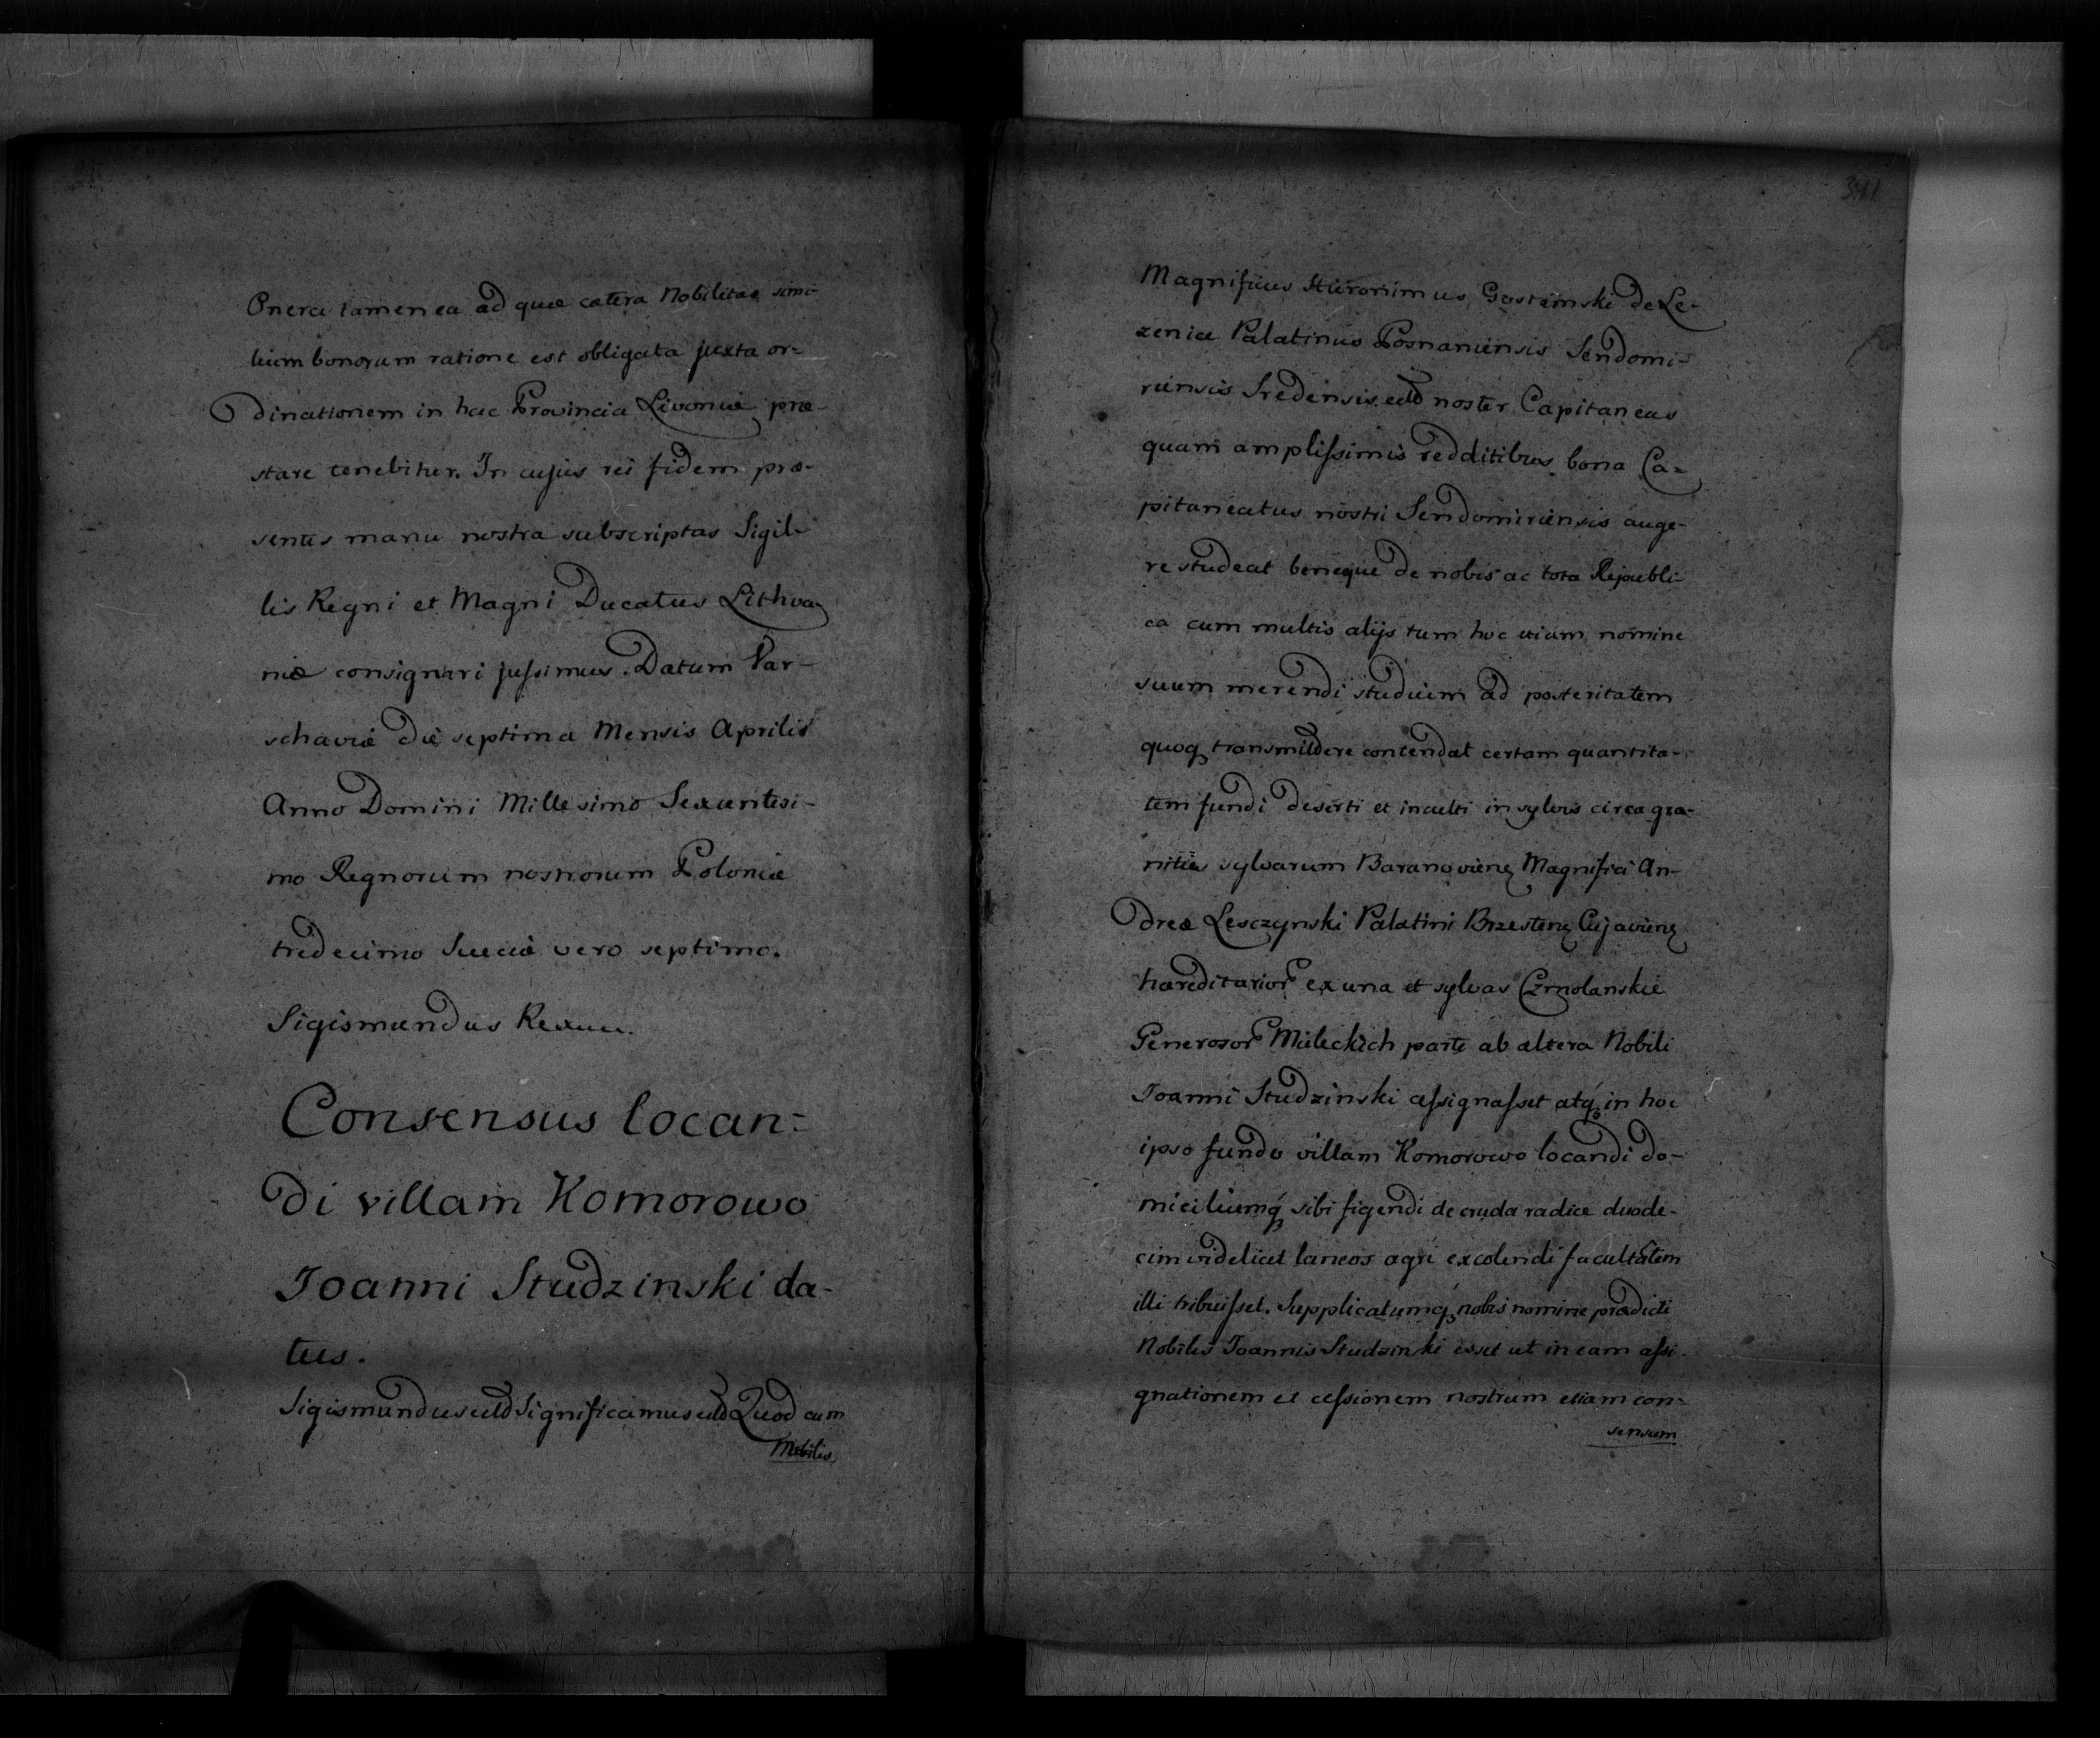 Onera tamen ea ad quæ cætera Nobilitas simi-
lium bonorum ratione est obligata juxta or=
dinationem in hac Provincia Livoniæ præ-
stare tenebitur. In cujus rei fidem præ-
sentes manu nostra subscriptas Sigil-
lis Regni et Magni Ducatus Lithva-
niæ consignari jussimus. Datum Var-
schaviæ die septima Mensis Aprilis
Anno Domini Millesimo Sexcentesi-
mo Regnorum nostrorum Poloniæ
tredecimo Sueciæ vero septimo.
Sigismundus Rex
Consensus locan=
di villam Komorowo
Joanni Studzinski da-
tus.
Sigismundus etc Significamus etc Quod cum
341
Magnificus Hieronimus Gostomski de Le-
zenice Palatinus Posnaniensis Sendomi-
riensis Sredensis etc noster Capitaneus
quam amplissimis redditibus bona Ca=
pitaneatus nostri Sendomiriensis auge-
re studeat beneque de nobis ac tota Republi-
ca cum multis alijs tum hoc etiam nomine
suum merendi studium ad posteritatem
quoq transmittere contendat certam quantita-
tem fundi deserti et inculti in sylvis circa gra-
nities sylvarum Baranovieng Magnifici An-
dreæ Lesczynski Palatini Brzesteng Cujavieng
hæreditarior ex una et sylvas Czmolanskie
Generosor Mieleckich parte ab altera Nobili
Joanni Studzinski assignasset atq in hoc
ipso fundo villam Komorowo locandi do-
miciliumq sibi figendi de cruda radice duode-
cim videlicet laneos agri excolendi facultatem
illi tribuisset. Supplicatumq nobis nomine prædicti
Nobilis Joannis Studzinski esset ut in eam assi-
gnationem et cessionem nostrum etiam con-
sensum